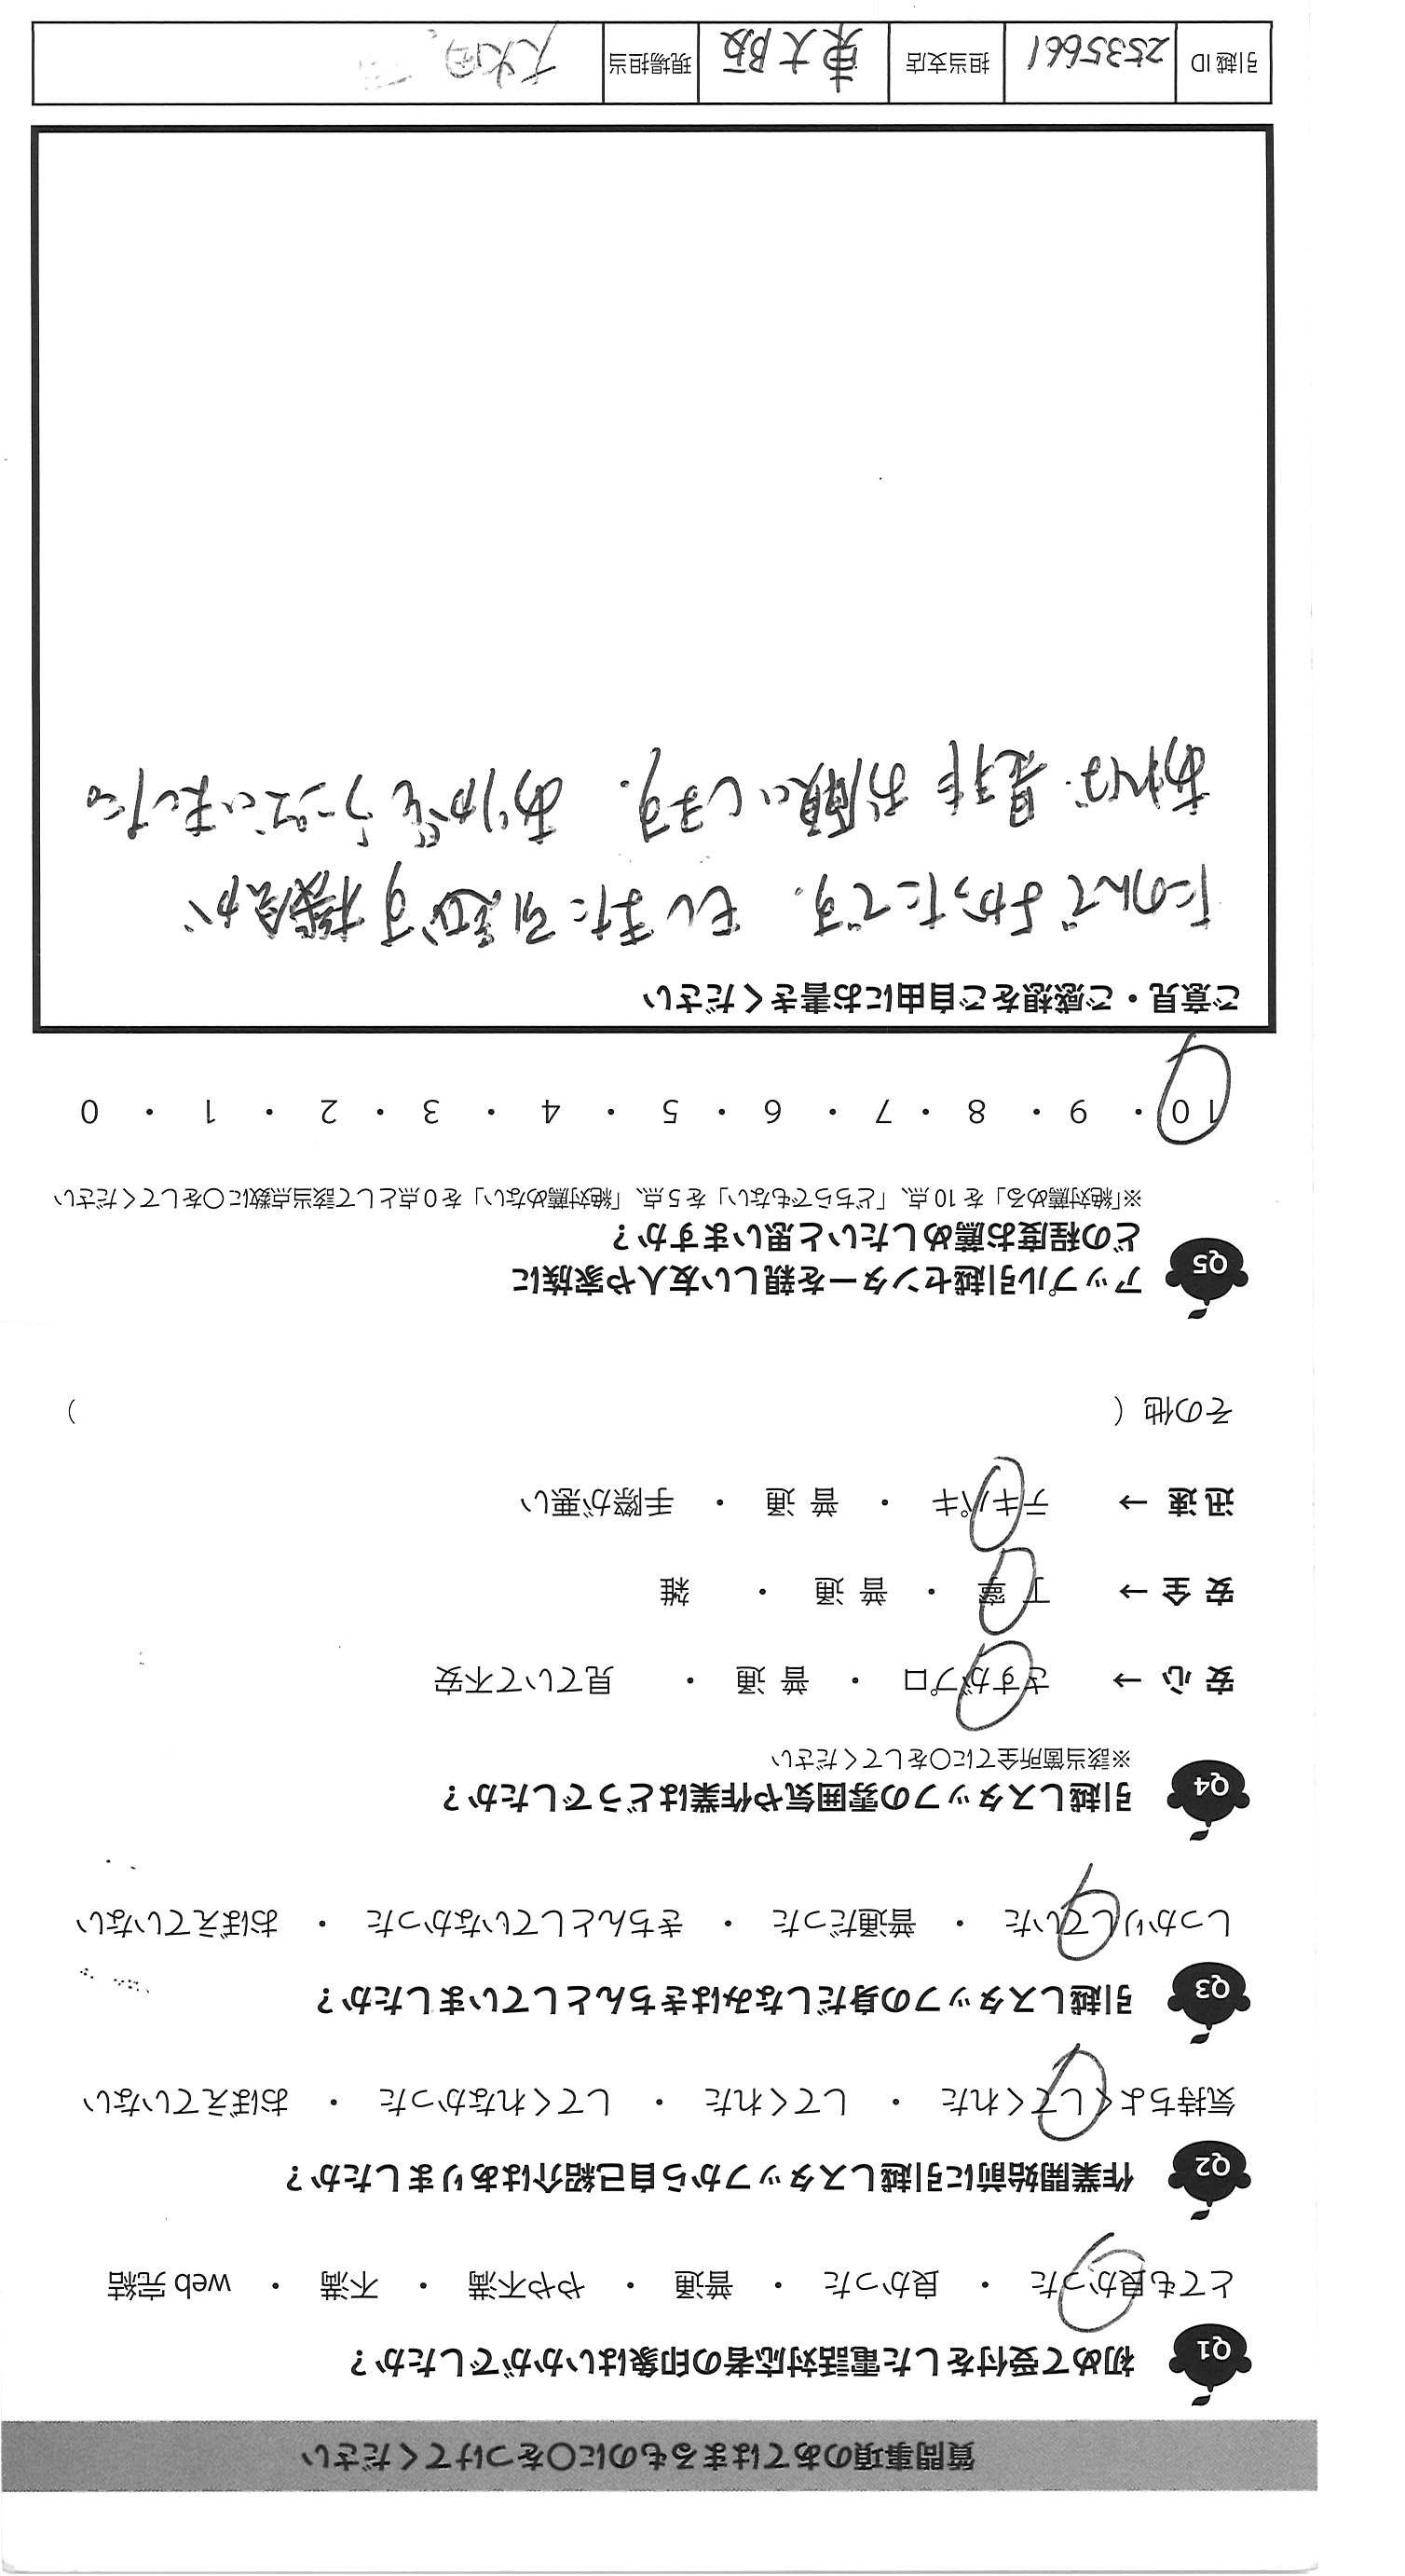 質問事項のあてはまるものに〇をつけてください
Q1 初めて受付をした電話対応者の印象はいかがでしたか？
とても良かった ・ 良かった ・ 普通 ・ やや不満 ・ 不満 ・ web 完結
Q2 作業開始前に引越しスタッフから自己紹介はありましたか？
気持ちよくしてくれた ・ してくれた ・ してくれなかった ・ おぼえていない
Q3 引越しスタッフの身だしなみはきちんとしていましたか？
しっかりしていた ・ 普通だった ・ きちんとしていなかった ・ おぼえていない
Q4 引越しスタッフの雰囲気や作業はどうでしたか？
※該当箇所全てに〇をしてください
安 心 → さすがプロ ・ 普 通 ・ 見ていて不安
安 全 → 丁 寧 ・ 普 通 ・ 雑
迅 速 → テキパキ ・ 普 通 ・ 手際が悪い
その他（ ）
Q5 アップル引越センターを親しい友人や家族に
どの程度お薦めしたいと思いますか？
※「絶対薦める」を 10 点、「どちらでもない」を 5 点、「絶対薦めない」を 0 点として該当点数に〇をしてください
10 ・ 9 ・ 8 ・ 7 ・ 6 ・ 5 ・ 4 ・ 3 ・ 2 ・ 1 ・ 0
ご意見・ご感想をご自由にお書きください
たのんでよかったです。もしまた引越す機会が
あれば是非お願いします。ありがとうございました。
引越 ID 2535661 担当支店 東大阪 現場担当